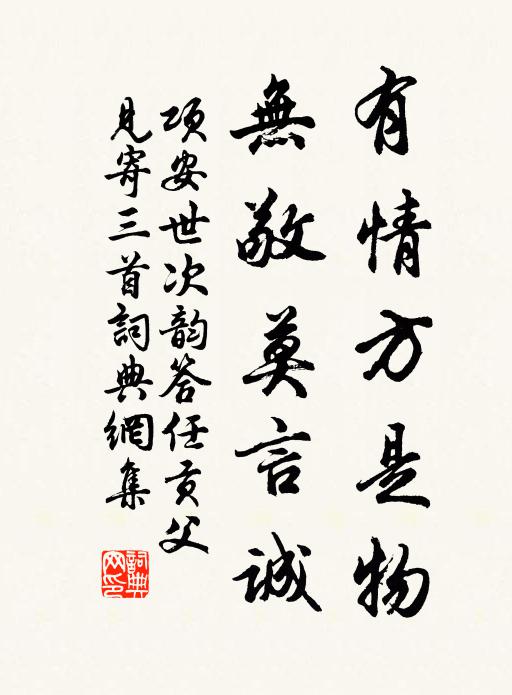 有情方是物
無敬莫言誠
項安世次韵答任貢父
見寄三首詞典網集
詞典
网印